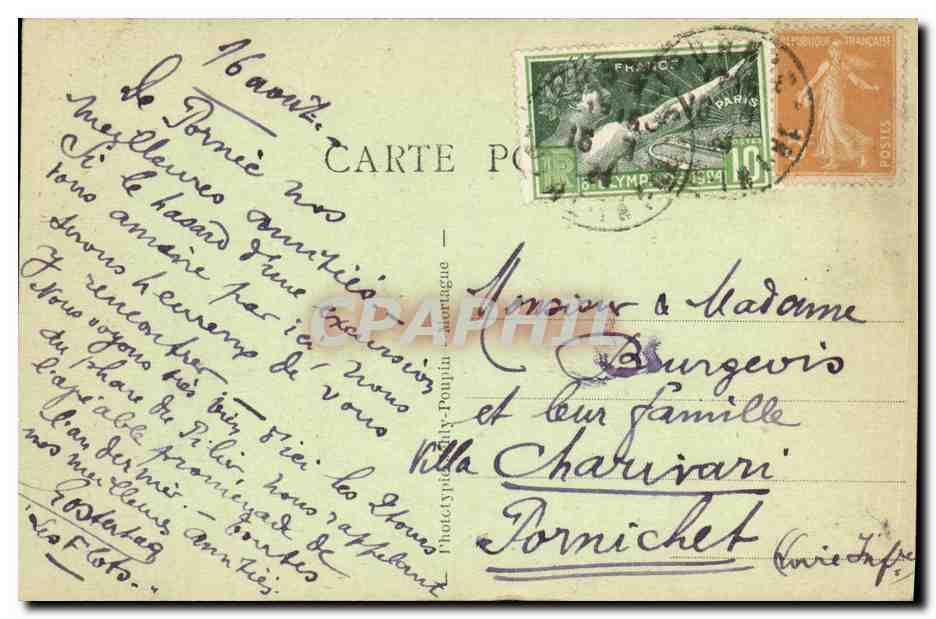 16 août. -
De Pornic nos
meilleures amitiés -
Si le hasard d'une excursion
vous amène par ici, nous
serons heureux de vous
y rencontrer -
Nous voyons très bien d'ici les 2 tours
du phare du Pilier nous rappelant
l'agréable promenade de
l'an dernier. - Toutes
nos meilleures amitiés.
Les Flots..
CARTE PO
FRANCE
PARIS
POSTES
10
OLYMPI 1924
REPUBLIQUE FRANÇAISE
POSTES
Phototypie Poupin - Mortagne
CPAPHIL
Monsieur & Madame
Bourgeois
et leur famille
Villa Charivari
Pornichet
(Loire Infre